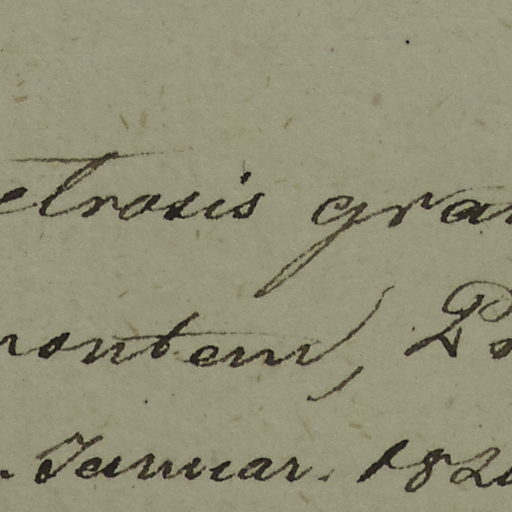 etrosis gra
montem, Po
. Januar. 182